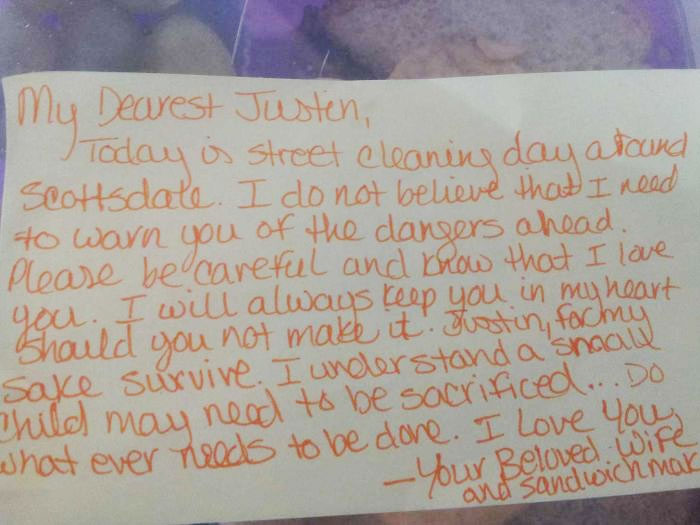 My Dearest Justin,
Today is street cleaning day around
Scottsdale. I do not believe that I need
to warn you of the dangers ahead.
Please be careful and know that I love
you. I will always keep you in my heart
should you not make it. Justin, for my
sake survive. I understand a small
child may need to be sacrificed... Do
what ever needs to be done. I Love You,
—Your Beloved Wife
and sandwichmak